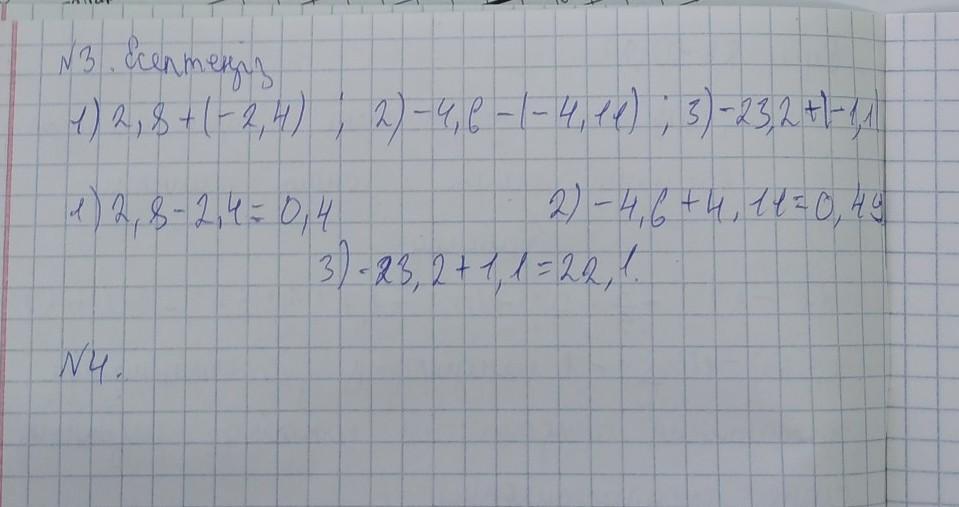 N3. Есептеңіз
1) 2,8+(-2,4) ; 2) -4,6-(-4,11) ; 3) -23,2+|-1,1|
1) 2,8-2,4=0,4 2) -4,6+4,11=0,49
3) -23,2+1,1=22,1.
N4.